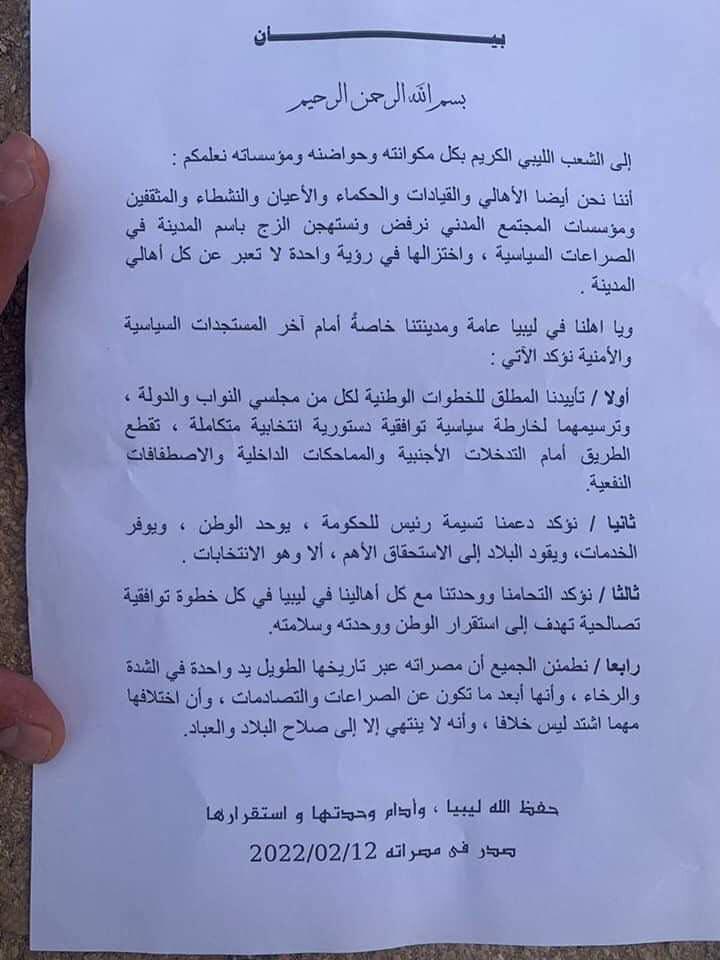 بيــــــــــــان
بسم الله الرحمن الرحيم
إلى الشعب الليبي الكريم بكل مكوناته وحواضنه ومؤسساته نعلمكم :
أننا نحن أيضا الأهالي والقيادات والحكماء والأعيان والنشطاء والمثقفين
ومؤسسات المجتمع المدني نرفض ونستهجن الزج باسم المدينة في
الصراعات السياسية ، واختزالها في رؤية واحدة لا تعبر عن كل أهالي
المدينة .
ويا اهلنا في ليبيا عامة ومدينتنا خاصةً أمام آخر المستجدات السياسية
والأمنية نؤكد الآتي :
أولا / تأييدنا المطلق للخطوات الوطنية لكل من مجلسي النواب والدولة ،
وترسيمهما لخارطة سياسية توافقية دستورية انتخابية متكاملة ، تقطع
الطريق أمام التدخلات الأجنبية والمماحكات الداخلية والاصطفافات
النفعية.
ثانيا / نؤكد دعمنا تسيمة رئيس للحكومة ، يوحد الوطن ، ويوفر
الخدمات، ويقود البلاد إلى الاستحقاق الأهم ، ألا وهو الانتخابات .
ثالثا / نؤكد التحامنا ووحدتنا مع كل أهالينا في ليبيا في كل خطوة توافقية
تصالحية تهدف إلى استقرار الوطن ووحدته وسلامته.
رابعا / نطمئن الجميع أن مصراته عبر تاريخها الطويل يد واحدة في الشدة
والرخاء ، وأنها أبعد ما تكون عن الصراعات والتصادمات ، وأن اختلافها
مهما اشتد ليس خلافا ، وأنه لا ينتهي إلا إلى صلاح البلاد والعباد.
حفظ الله ليبيا ، وأدام وحدتها و استقرارها
صدر في مصراته 2022/02/12